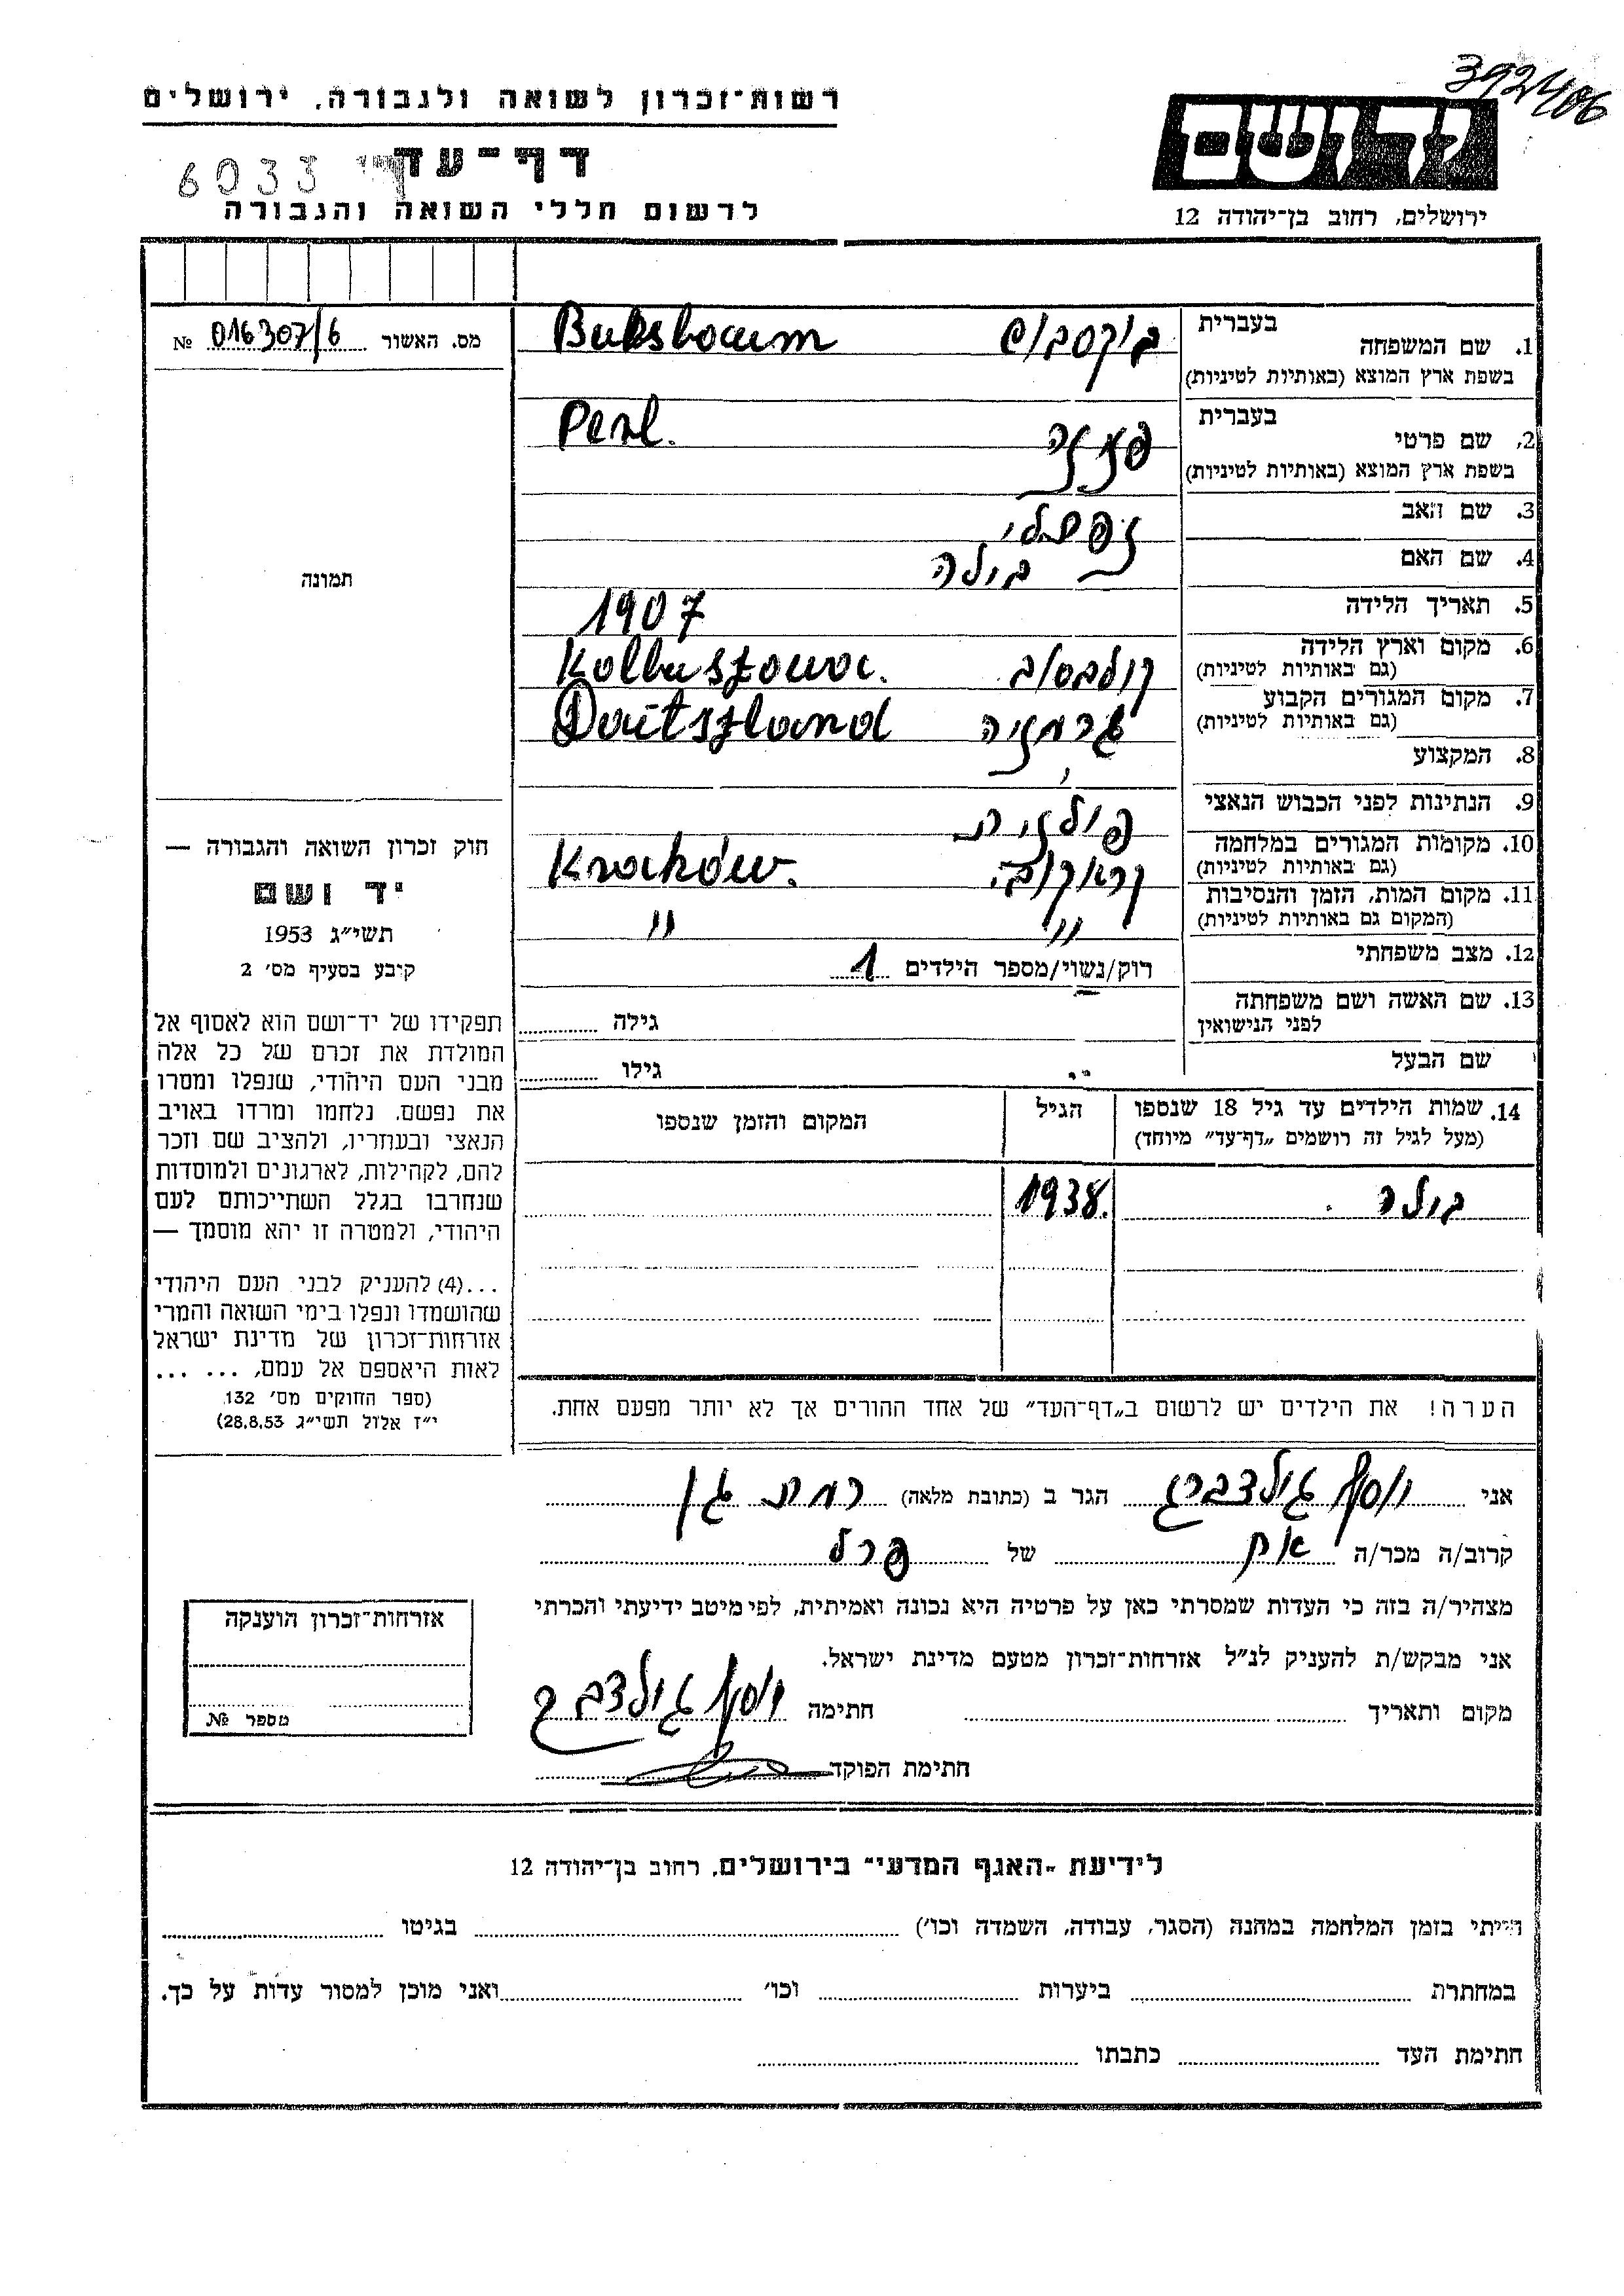 392406
רשות־זכרון לשואה ולגבורה, ירושלים
ידושם
דף־עד
6033
ירושלים, רחוב בן־יהודה 12
לרשום חללי השואה והגבורה
מס. האשור 016307/6 №
תמונה
חוק זכרון השואה והגבורה —
יד ושם
תשי״ג 1953
קובע בסעיף מס׳ 2
תפקידו של יד־ושם הוא לאסוף אל
המולדת את זכרם של כל אלה
מבני העם היהודי, שנפלו ומסרו
את נפשם, נלחמו ומרדו באויב
הנאצי ובעוזריו, ולהציב שם וזכר
להם, לקהילות, לארגונים ולמוסדות
שנחרבו בגלל השתייכותם לעם
היהודי, ולמטרה זו יהא מוסמך —
...(4) להעניק לבני העם היהודי
שהושמדו ונפלו בימי השואה והמרי
אזרחות־זכרון של מדינת ישראל
לאות היאספם אל עמם, ... ...
(ספר החוקים מס׳ 132
י״ז אלול תשי״ג 28.8.53)
בעברית
1. שם המשפחה בוקסבוים Buksbaum
בשפת ארץ המוצא (באותיות לטיניות)
בעברית
2. שם פרטי Perl.
בשפת ארץ המוצא (באותיות לטיניות)
3. שם האב נפתלי
4. שם האם בולה
5. תאריך הלידה 1907
6. מקום וארץ הלידה קולבסוב Kolbuszowa.
(גם באותיות לטיניות)
7. מקום המגורים הקבוע גרמניה Daitszland
(גם באותיות לטיניות)
8. המקצוע
9. הנתינות לפני הכבוש הנאצי פולנית
10. מקומות המגורים במלחמה קראקוב. Kraków.
(גם באותיות לטיניות)
11. מקום המות, הזמן והנסיבות " "
(המקום גם באותיות לטיניות)
12. מצב משפחתי רוק/נשוי/מספר הילדים 1
13. שם האשה ושם משפחתה גילה
לפני הנישואין
שם הבעל גילו
14. שמות הילדים עד גיל 18 שנספו הגיל המקום והזמן שנספו
(מעל לגיל זה רושמים „דף־עד״ מיוחד)
בולה 1938.
הערה! את הילדים יש לרשום ב„דף־העד״ של אחד ההורים אך לא יותר מפעם אחת.
אני יוסף גולדברג הגר ב (כתובת מלאה) רמת גן
קרוב/ה מכר/ה אח של פרל
מצהיר/ה בזה כי העדות שמסרתי כאן על פרטיה היא נכונה ואמיתית, לפי מיטב ידיעתי והכרתי
אני מבקש/ת להעניק לנ״ל אזרחות־זכרון מטעם מדינת ישראל.
מקום ותאריך חתימה יוסף גולדברג
חתימת הפוקד
אזרחות־זכרון הוענקה
מספר №
לידיעת „האגף המדעי״ בירושלים, רחוב בן־יהודה 12
הייתי בזמן המלחמה במחנה (הסגר, עבודה, השמדה וכו׳) בגיטו
במחתרת ביערות וכו׳ ואני מוכן למסור עדות על כך.
חתימת העד כתבתו